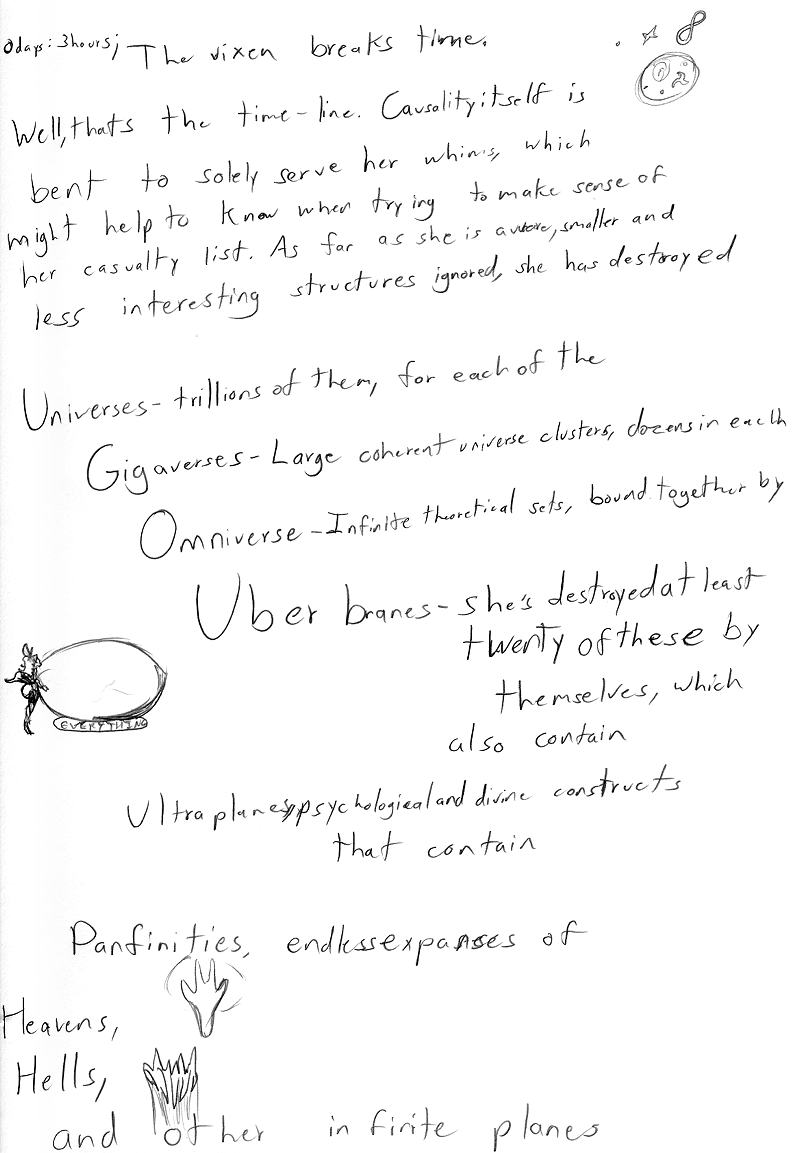 0days:3hours; The vixen breaks time.
Well, thats the time-line. Causality itself is
bent to solely serve her whims, which
might help to know when trying to make sense of
her casualty list. As far as she is aware, smaller and
less interesting structures ignored, she has destroyed
Universes- trillions of them, for each of the
Gigaverses- Large coherent universe clusters, dozens in each
Omniverse - Infinite theoretical sets, bound together by
Uber branes- she's destroyed at least
twenty of these by
themselves, which
EVERYTHING
also contain
Ultraplanes, psychological and divine constructs
that contain
Panfinities, endless expanses of
Heavens,
Hells,
and other infinite planes